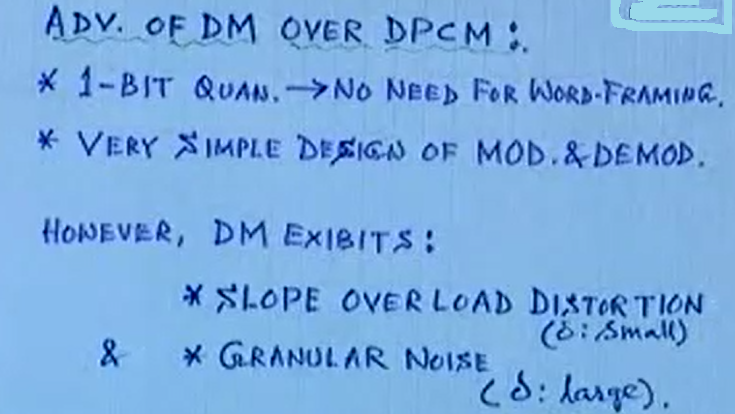 ADV. OF DM OVER DPCM :.
* 1-BIT QUAN. → NO NEED FOR WORD-FRAMING.
* VERY SIMPLE DESIGN OF MOD. & DEMOD.
HOWEVER, DM EXIBITS :
* SLOPE OVERLOAD DISTORTION
(δ : small)
& * GRANULAR NOISE
(δ : large).